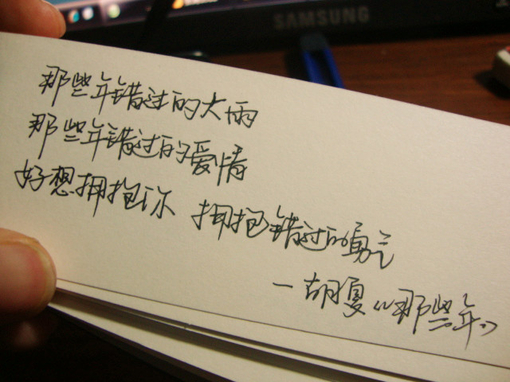 SAMSUNG
那些年错过的大雨
那些年错过的爱情
好想拥抱你 拥抱错过的勇气
一胡夏《那些年》